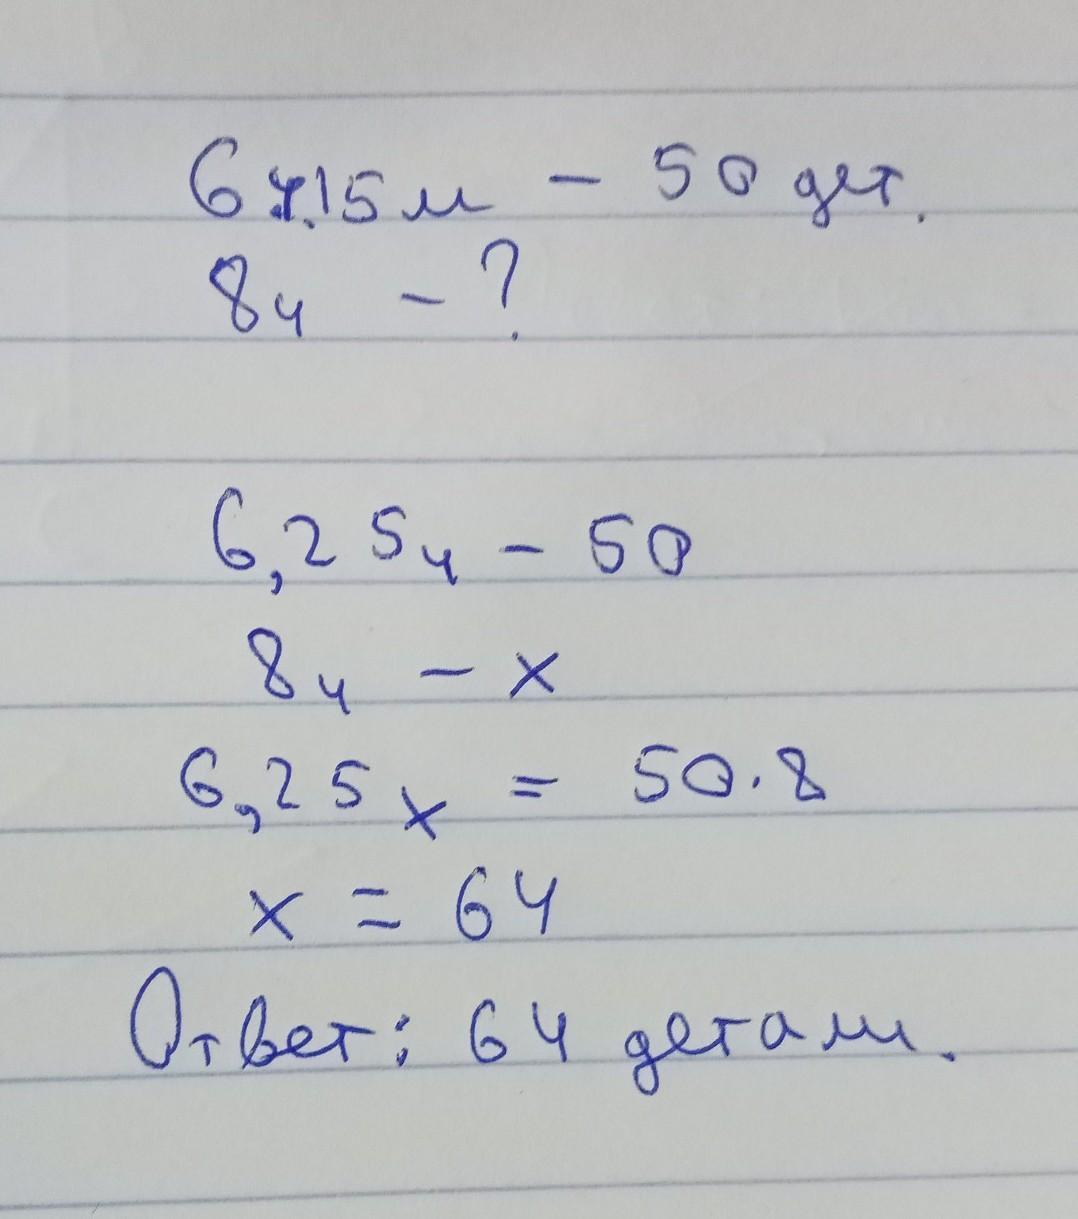 6ч.15м - 50 дет.
8ч - ?
6,25ч - 50
8ч - x
6,25x = 50.8
x = 64
Ответ: 64 детали.